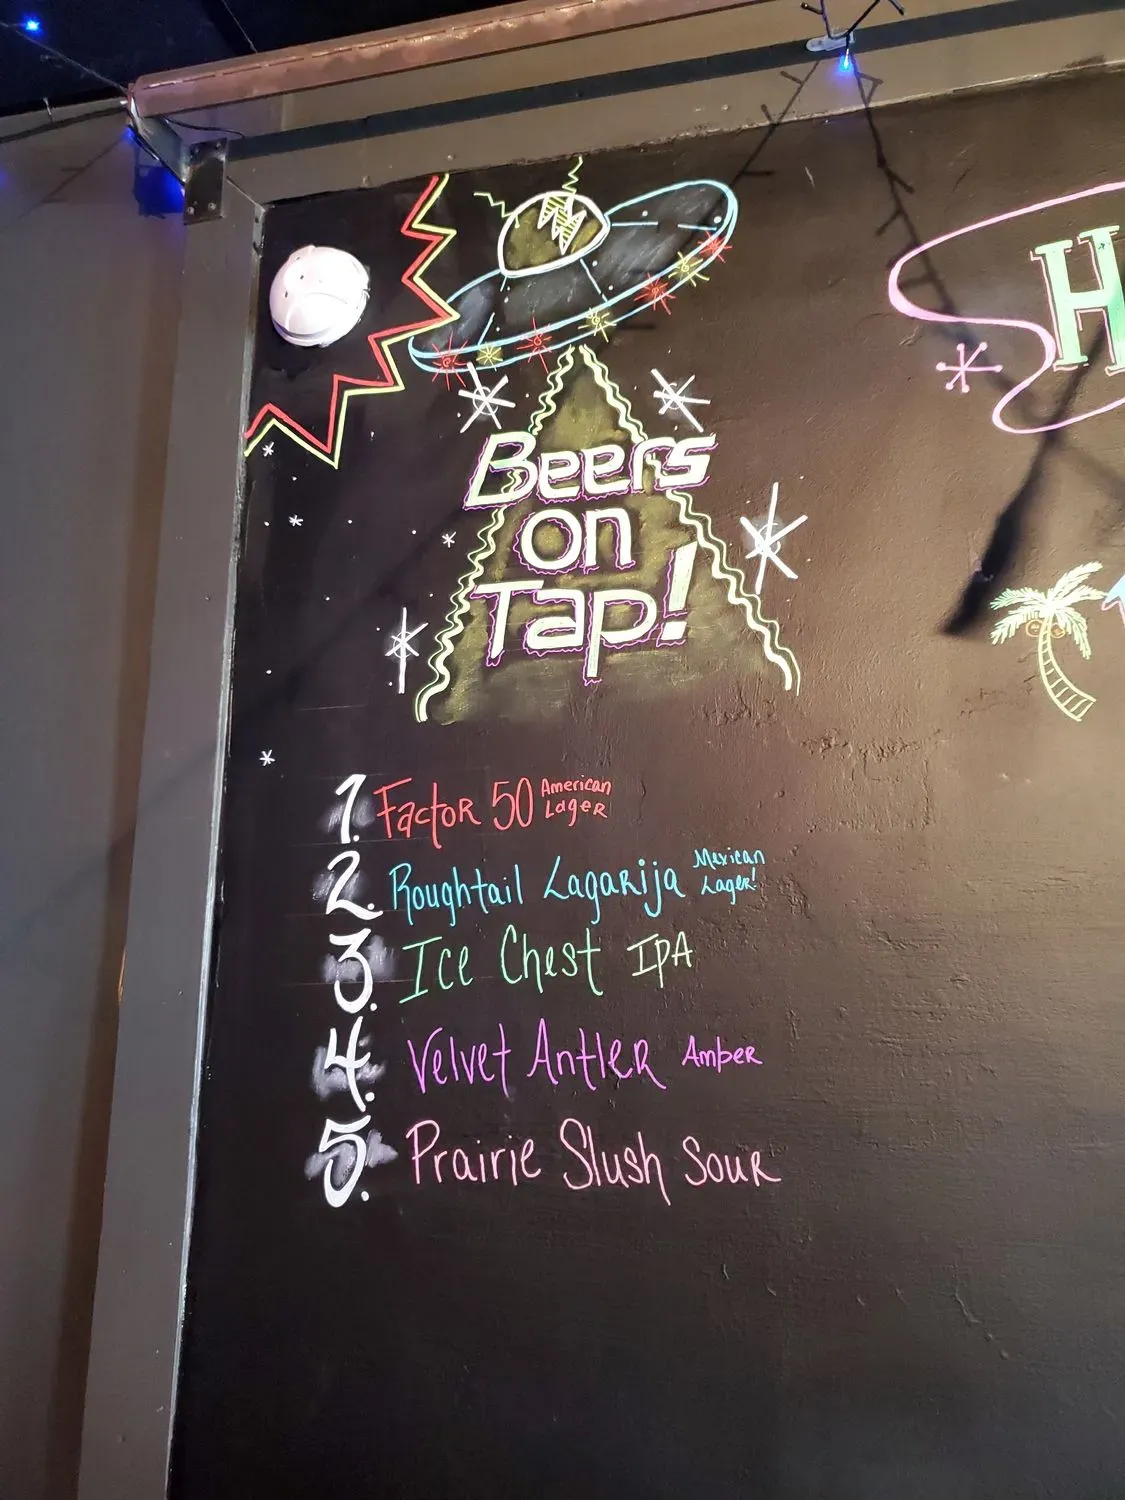 H
Beers
on
Tap!
1. Factor 50 American Lager
2. Roughtail Lagarija Mexican Lager!
3. Ice Chest IPA
4. Velvet Antler Amber
5. Prairie Slush Sour